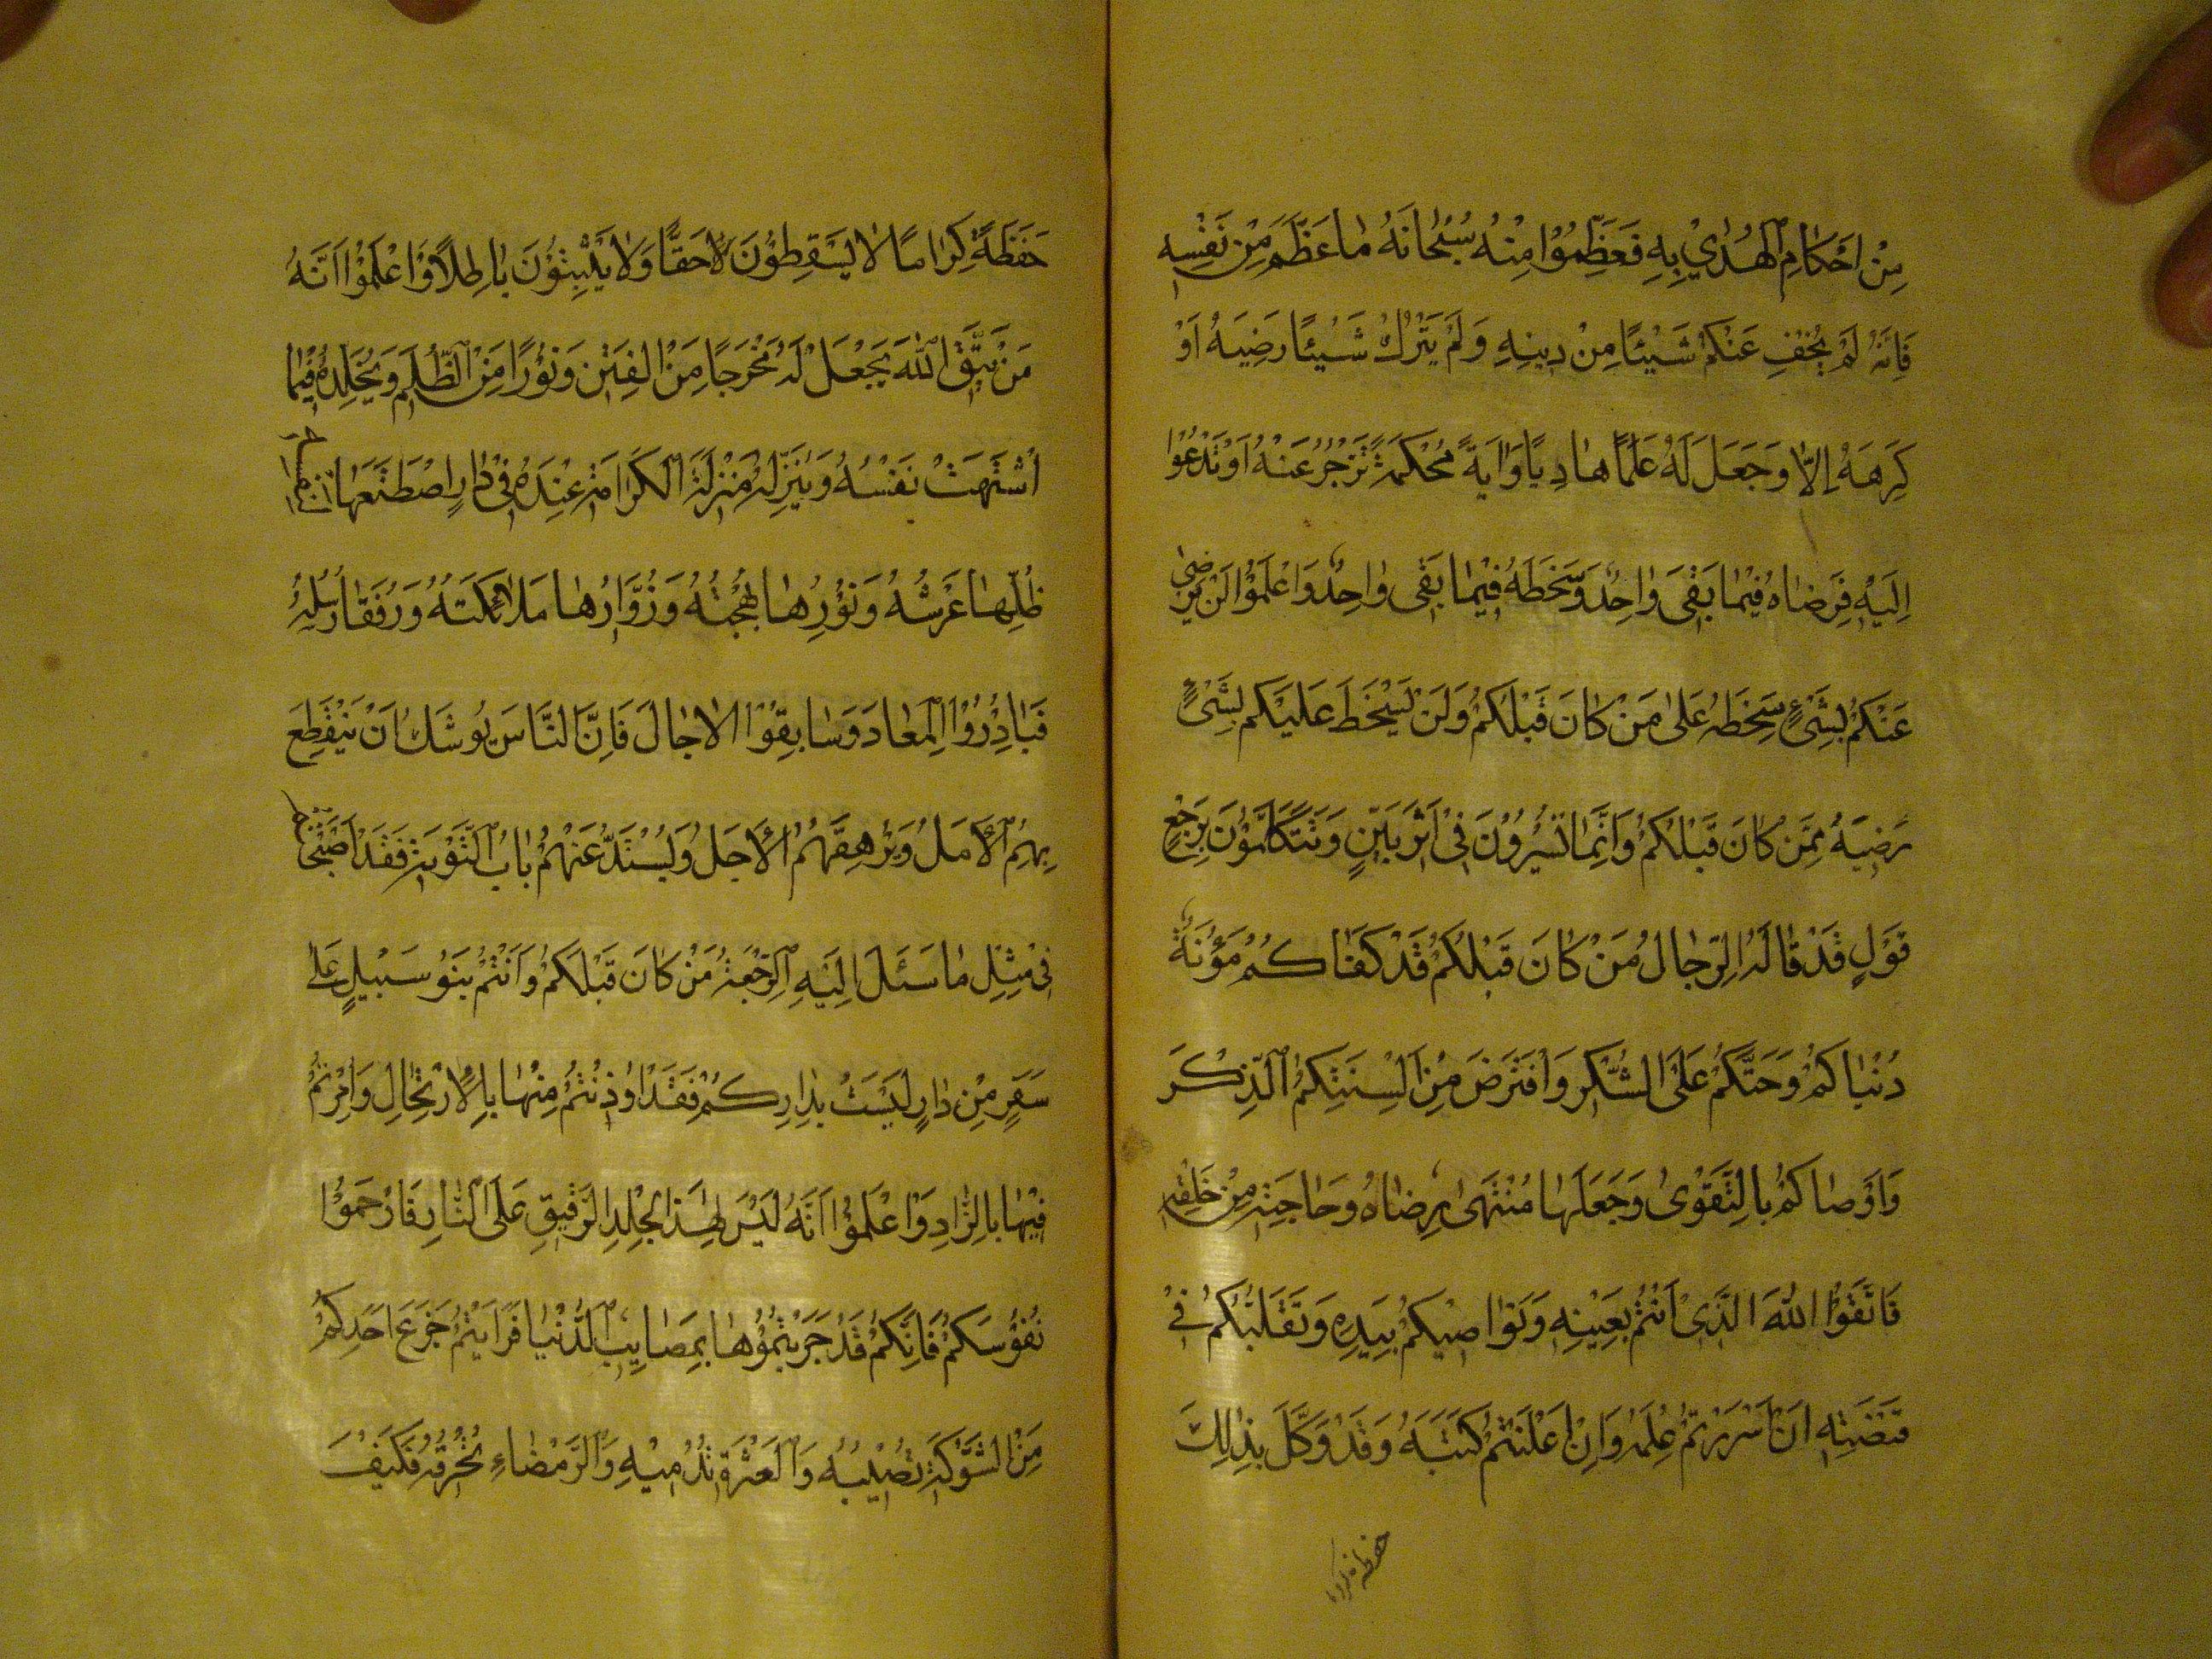 مِنْ اَحْكَامِ الْهُدٰي بِهِ فَعَظِّمُوْا مِنْهُ سُبْحَانَهُ مَا عَظَّمَ مِنْ نَفْسِهِ
فَاِنَّهُ لَمْ يُخْفِ عَنْكُمْ شَيْئًا مِنْ دِينِهِ وَلَمْ يَتْرُكْ شَيْئًا رَضِيَهُ اَوْ
كَرِهَهُ اِلَّا وَجَعَلَ لَهُ عَلَمًا هَادِيًا وَاٰيَةً مُحْكَمَةً تَزْجُرُ عَنْهُ اَوْ تَدْعُوْا
اِلَيْهِ فَرِضَاهُ فِيْمَا بَقِىَ وَاحِدٌ وَسَخَطُهُ فِيْمَا بَقِىَ وَاحِدٌ وَاعْلَمُوْا لَنْ يَرْضىٰ
عَنْكُمْ بِشَىْءٍ سَخِطَهُ عَلىٰ مَنْ كَانَ قَبْلَكُمْ وَلَنْ يَسْخَطَ عَلَيْكُمْ بِشَىْءٍ
رَضِيَهُ مِمَّنْ كَانَ قَبْلَكُمْ وَاِنَّمَا تَسِيْرُوْنَ فِىْ اَثَرٍ بَيِّنٍ وَتَتَكَلَّمُوْنَ بِرَجْعِ
قَوْلٍ قَدْ قَالَهُ الرِّجَالُ مَنْ كَانَ قَبْلَكُمْ قَدْ كَفَاكُمْ مَؤُنَةَ
دُنْيَاكُمْ وَحَثَّكُمْ عَلَى الشُّكْرِ وَافْتَرَضَ مِنْ اَلْسِنَتِكُمُ الذِّكْرَ
وَاَوْصَاكُمْ بِالتَّقْوىٰ وَجَعَلَهَا مُنْتَهىٰ رِضَاهُ وَحَاجَتِهِ مِنْ خَلْقِهِ
فَاتَّقُوْا اللهَ الَّذِىْ اَنْتُمْ بِعَيْنِهِ وَنَوَاصِيْكُمْ بِيَدِهِ وَتَقَلُّبُكُمْ فِىْ
قَبْضَتِهِ اِنْ اَسْرَرْتُمْ عَلِمَهُ وَاِنْ اَعْلَنْتُمْ كَتَبَهُ وَقَدْ وَكَّلَ بِذٰلِكَ
حفظة كراما
حَفَظَةً كِرَامًا لَا يَسْقِطُوْنَ حَقًّا وَلَا يُثْبِتُوْنَ بَاطِلًا وَاعْلَمُوْا اَنَّهُ
مَنْ يَتَّقِ اللهَ يَجْعَلْ لَهُ مَخْرَجًا مِنَ الْفِتَنِ وَنُوْرًا مِنَ الظُّلَمِ وَيُخَلِّدْهُ فِيْمَا
اشْتَهَتْ نَفْسُهُ وَيُنَزِّلْهُ مَنْزِلَةَ الْكَرَامَةِ عِنْدَهُ فِىْ دَارٍ اصْطَنَعَهَا
ظِلُّهَا عَرْشُهُ وَنُوْرُهَا بَهْجَتُهُ وَزُوَّارُهَا مَلَائِكَتُهُ وَرُفَقَاءُ رُسُلِهِ
فَبَادِرُوْا الْمَعَادَ وَسَابِقُوْا الْاٰجَالَ فَاِنَّ النَّاسَ يُوشَكُ اَنْ يَنْقَطِعَ
بِهِمُ الْاَمَلُ وَيَرْهَقَهُمُ الْاَجَلُ وَيُسْتَدَّ عَنْهُمْ بَابُ التَّوْبَةِ فَقَدْ اَصْبَحْتُمْ
فِىْ مِثْلِ مَا سَئَلَ اِلَيْهِ الرَّجْعَةَ مَنْ كَانَ قَبْلَكُمْ وَاَنْتُمْ بَنُوْ سَبِيْلٍ عَلىٰ
سَفَرٍ مِنْ دَارٍ لَيْسَتْ بِدَارِكُمْ فَقَدْ اُوذِنْتُمْ مِنْهَا بِالْاِرْتِحَالِ وَاُمِرْتُمْ
فِيْهَا بِالزَّادِ وَاعْلَمُوْا اَنَّهُ لَيْسَ لِهٰذَا الْجِلْدِ الرَّقِيْقِ عَلَى النَّارِ فَارْحَمُوْا
نُفُوْسَكُمْ فَاِنَّكُمْ قَدْ جَرَّبْتُمُوْهَا بِمَصَايِبِ الدُّنْيَا فَرَاَيْتُمْ جَزَعَ اَحَدِكُمْ
مِنَ الشَّوْكَةِ تُصِيْبُهُ وَالْعَثْرَةِ تُدْمِيْهِ وَالرَّمْضَاءِ تُحْرِقُهُ فَكَيْفَ